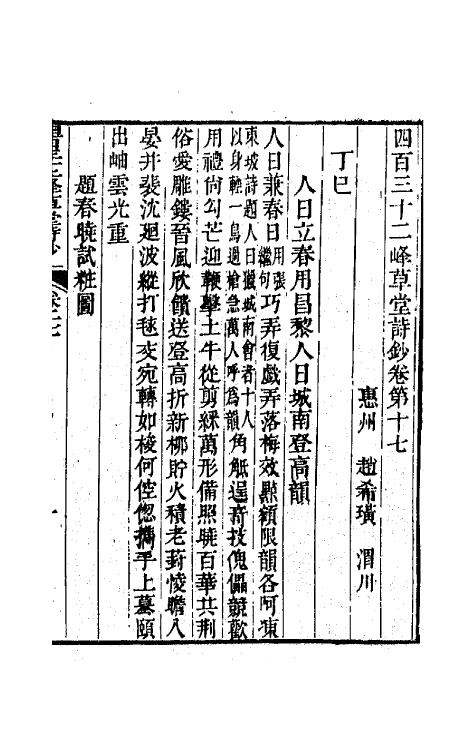 四百三十二峰草堂詩鈔卷第十七
惠州　趙希璜　渭川
丁巳
人日立春用昌黎人日城南登高韻
人日兼春日用張繼句巧弄復戲弄落梅效點額限韻各阿凍
東坡詩題人日獵城南會者十人以身輕一鳥過槍急萬人呼爲韻角觝逞奇技傀儡競歡
用禮尙勾芒迎鞭擊土牛從剪綵萬形備照曉百華共荆
俗愛雕鏤晉風欣饋送登高折新柳貯火積老葑悛瞻入
晏井裴沈廻波縱打毬交宛轉如梭何倥偬攜手上墓頤
出岫雲光重
趙春曉試粧圖